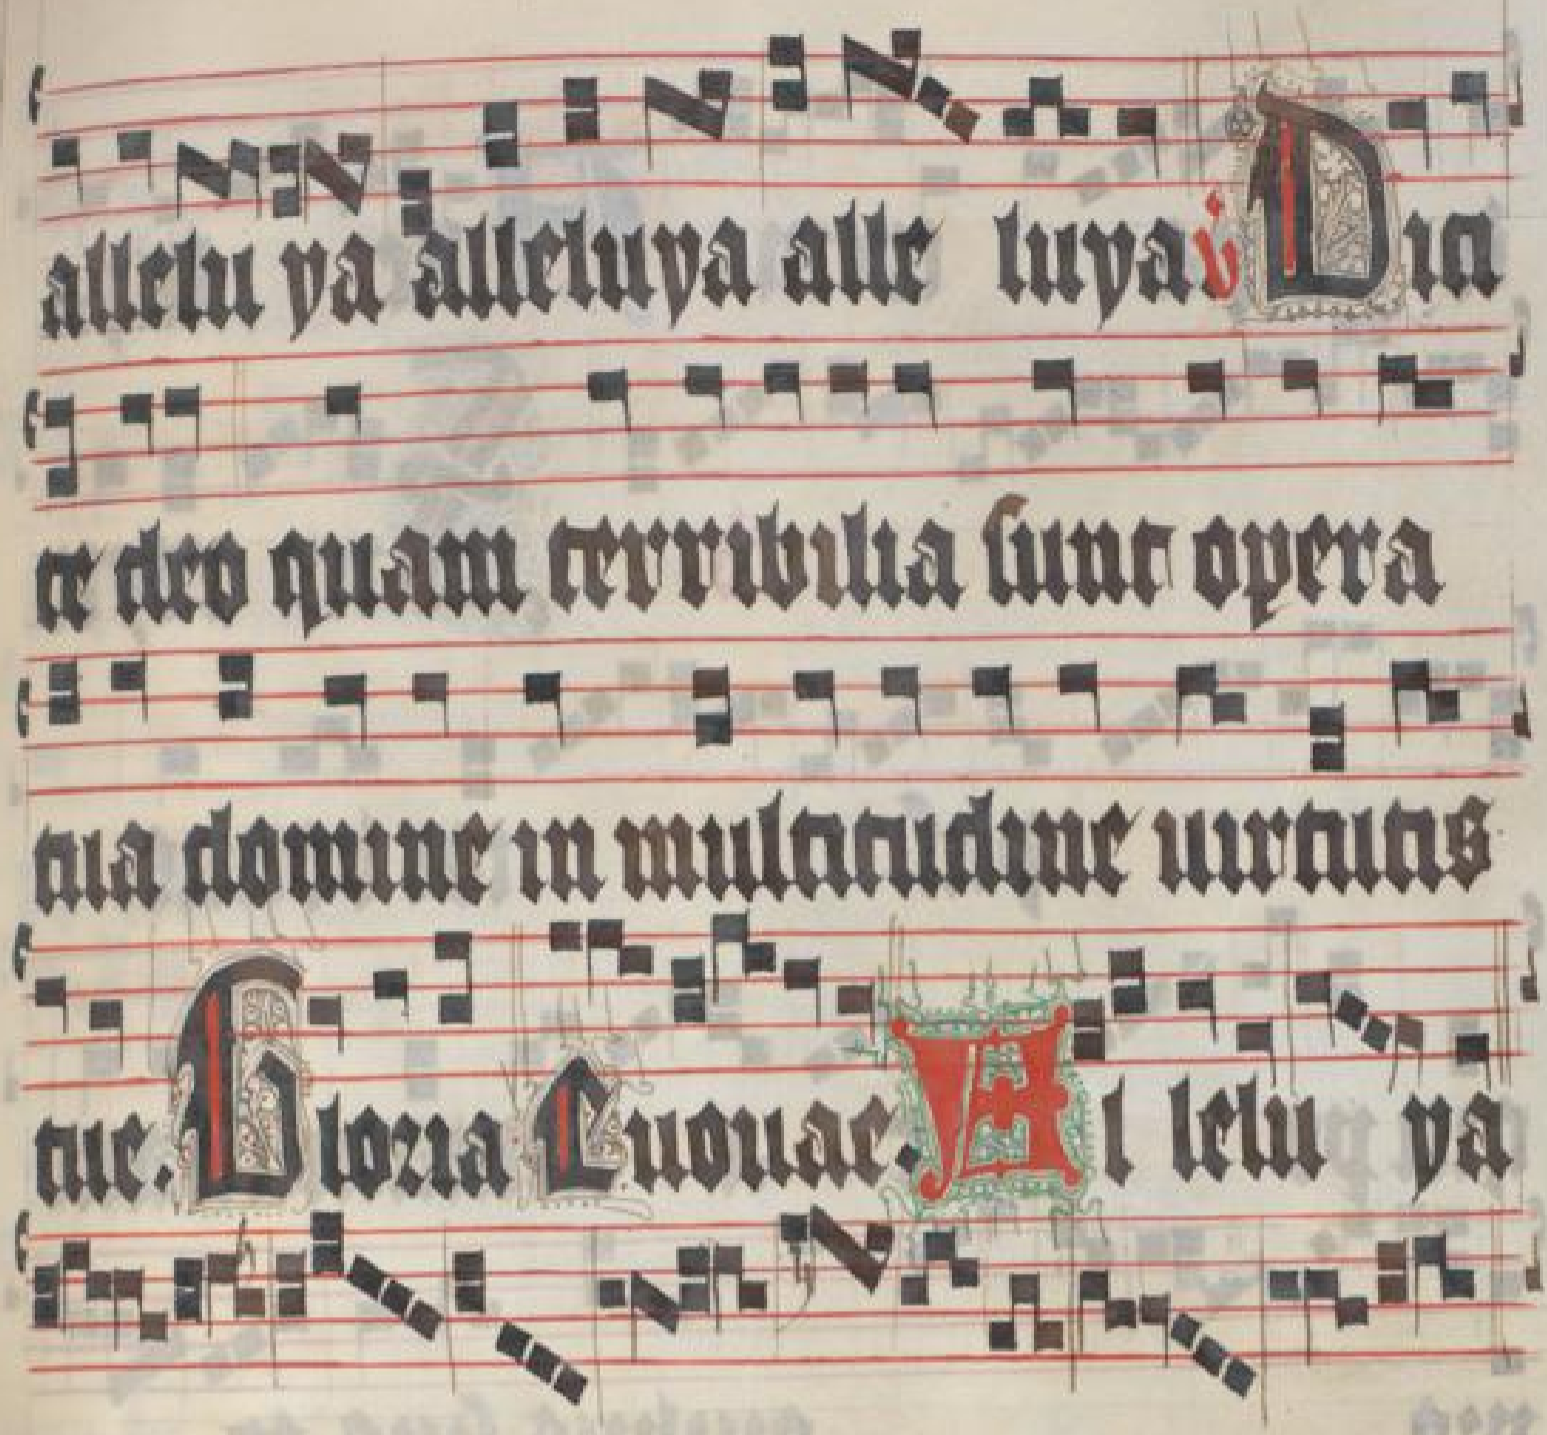 allelu ya alleluya alle luya v Dici
te deo quam terribilia sunt opera
tua domine in multitudine uirtutis
tue. Gloria Euouae. Al lelu ya